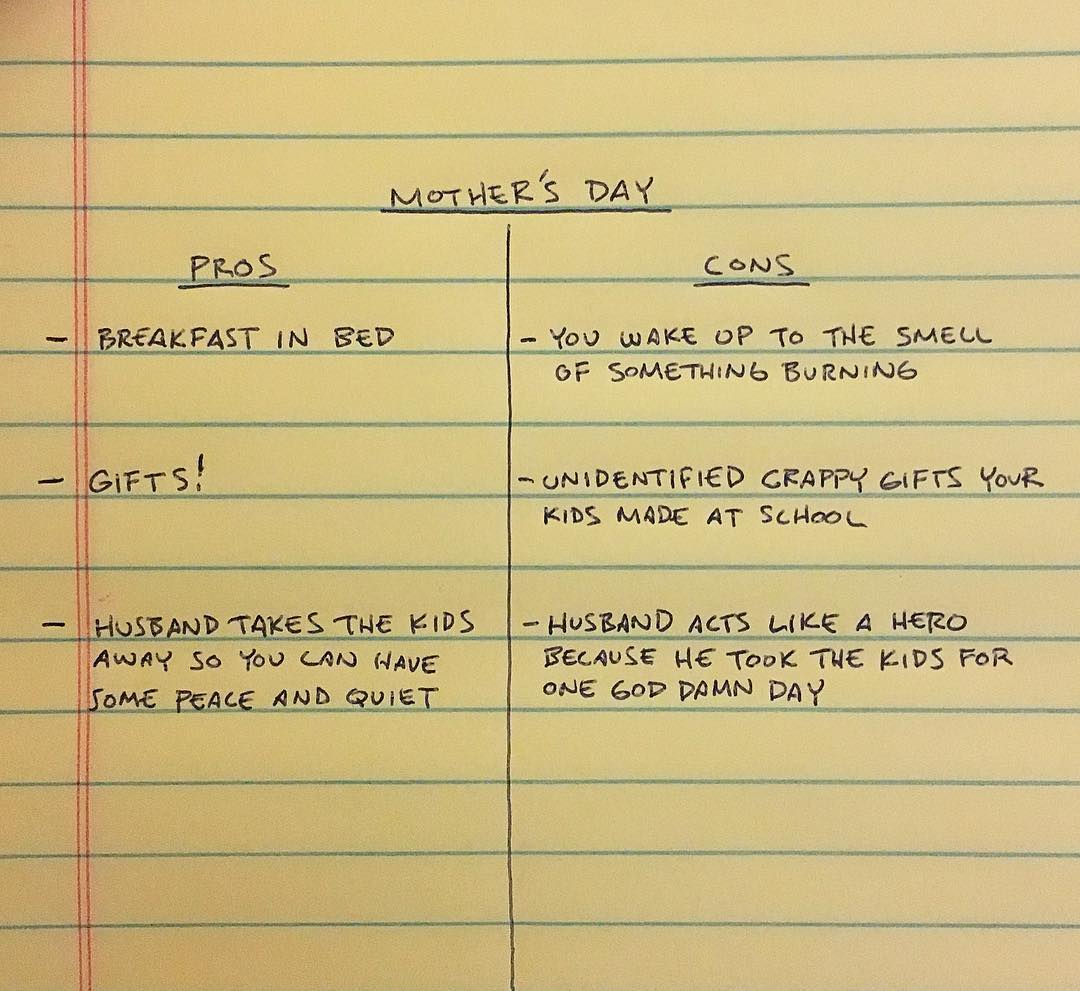 MOTHER'S DAY
PROS
- BREAKFAST IN BED
- GIFTS!
- HUSBAND TAKES THE KIDS
AWAY SO YOU CAN HAVE
SOME PEACE AND QUIET
CONS
- YOU WAKE UP TO THE SMELL
OF SOMETHING BURNING
- UNIDENTIFIED CRAPPY GIFTS YOUR
KIDS MADE AT SCHOOL
- HUSBAND ACTS LIKE A HERO
BECAUSE HE TOOK THE KIDS FOR
ONE GOD DAMN DAY